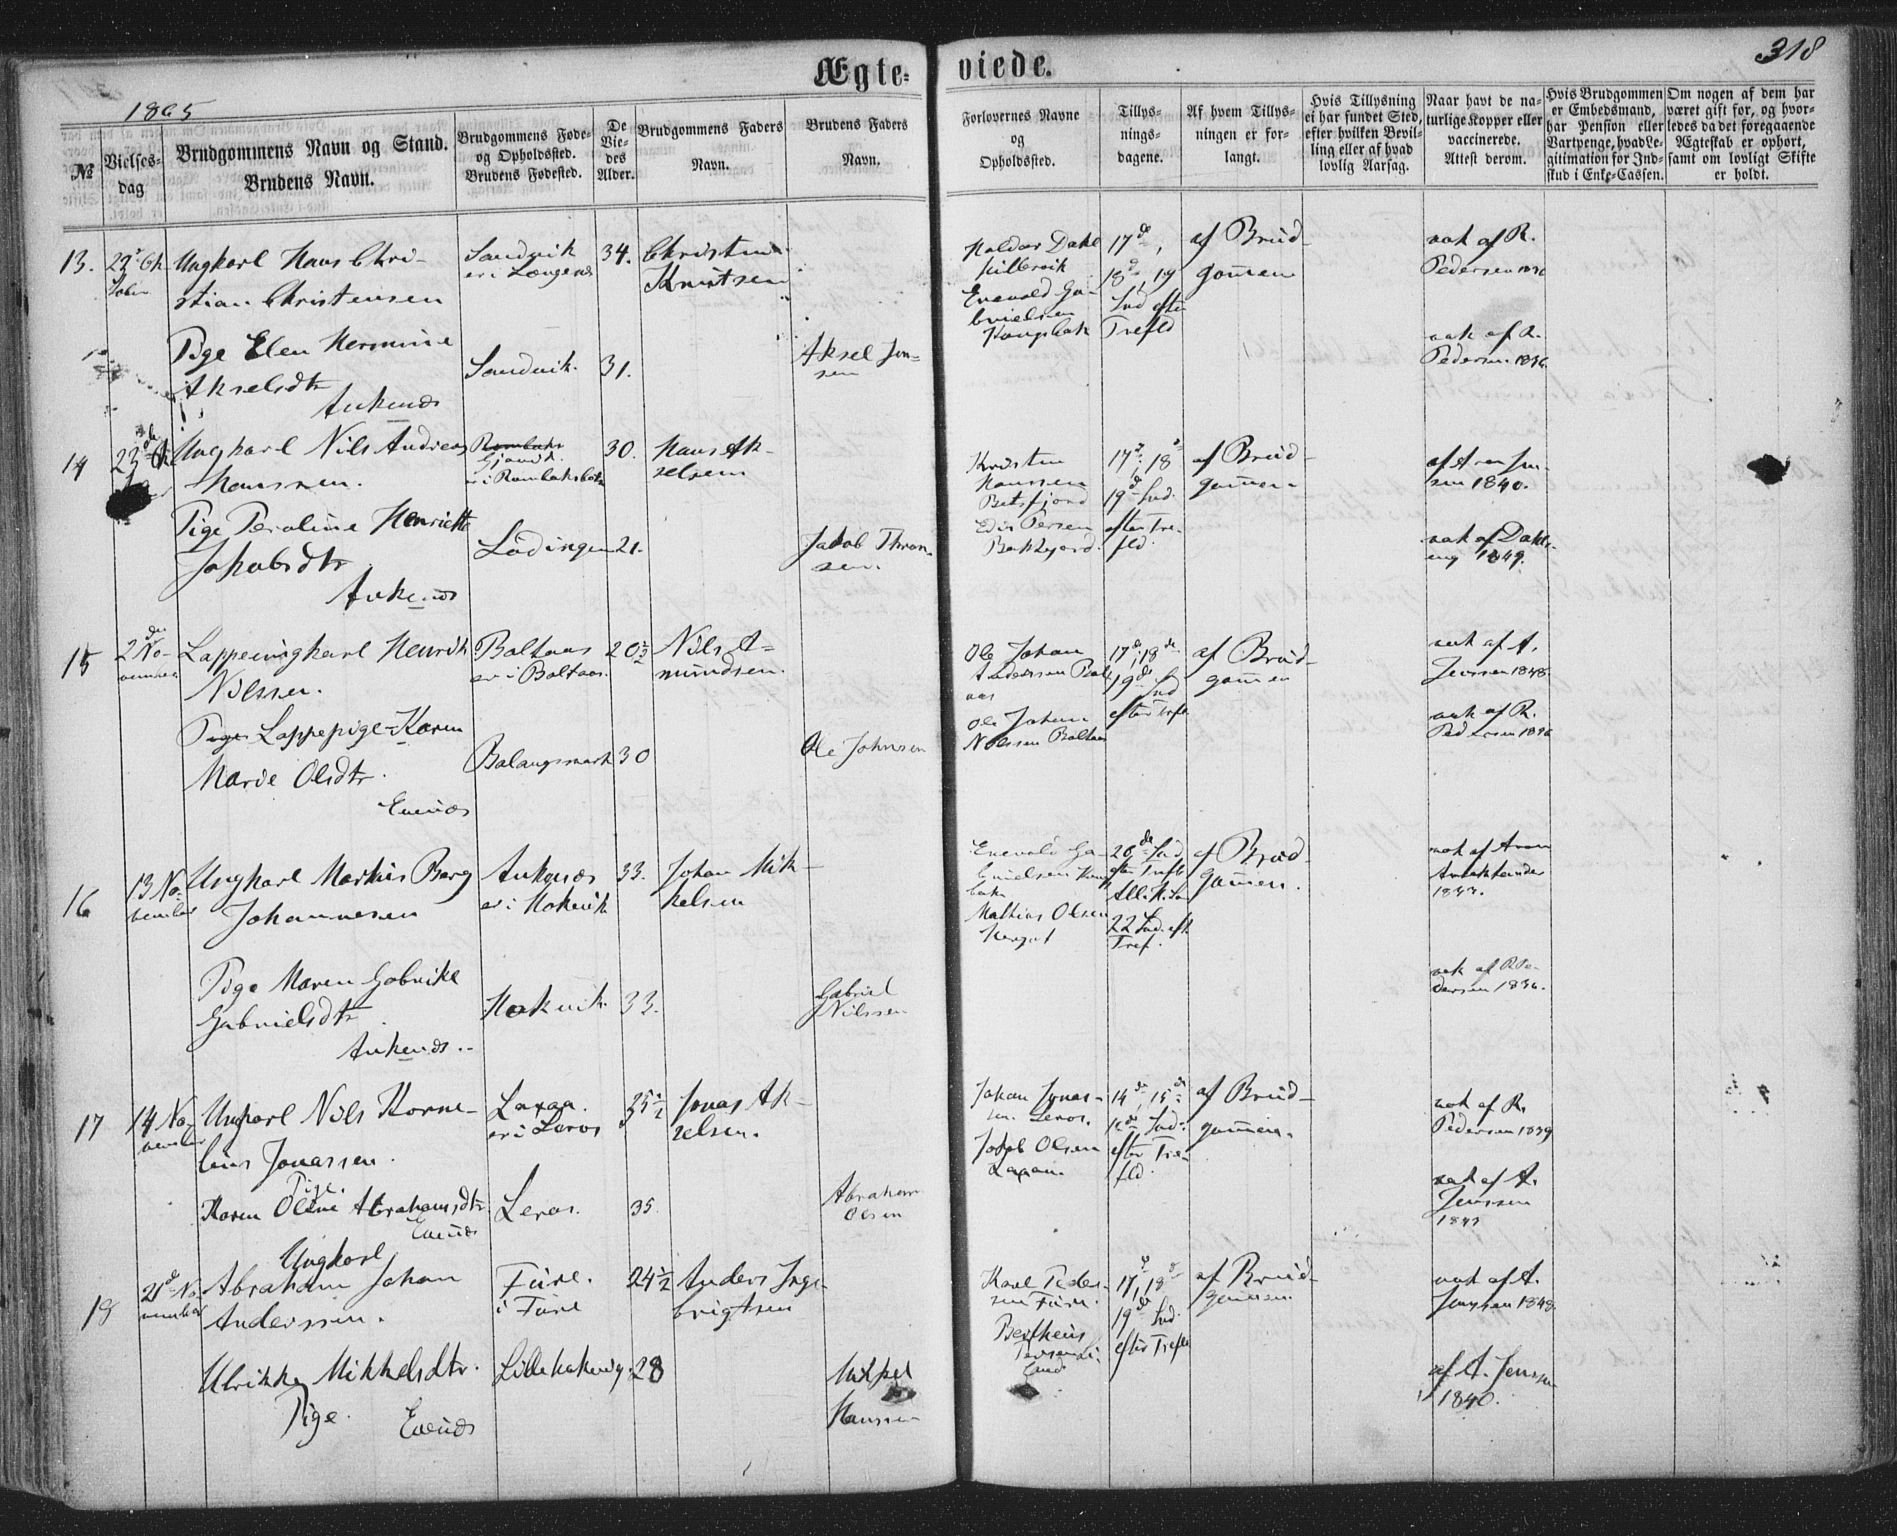 318
Ægte-
viede.
1865
No
Vielses-
dag
Brudgommens Navn og Stand.
Brudens Navn.
Brudgommens Føde-
og Opholdssted.
Brudens Fødested.
De
Vie-
des
Alder.
Brudgommens Faders
Navn.
Brudens Faders
Navn.
Forlovernes Navne
og
Opholdssted.
Tillys-
nings-
dagene.
Af hvem Tillys-
ningen er for-
langt.
Hvis Tillysning
ei har fundet Sted,
efter hvilken Bevil-
ling eller af hvad
lovlig Aarsag.
Naar havt de na-
turlige Kopper eller
vaccinerede.
Attest derom.
Hvis Brudgommen
er Embedsmand,
har Pension eller
Vartpenge, hvad Le-
gitimation for Ind-
skud i Enke-Cassen.
Om nogen af dem har
været gift for, og hvor-
ledes da det foregaaende
Ægteskab er ophørt,
samt om lovligt Skifte
er holdt.
13.
Ungkarl Hans Chri-
stian Christensen
Sandvik
er i
34.
Christen
Knutsen
Haldor Dahl
17de,
18de, 19
Snd efter
Trefld
af Brud-
gommen
vak af R.
Pedersen 1836
Enevold Ga-
brielsen
Pige Elen Hermine
Akselsdtr
Ankenæs
Sandvik.
31.
Aksel Jen-
sen
vak af R.
Pedersen 1836.
14
23de
Ungkarl Nils Andreas
Hanssen.
i Rombaksbotn
30.
Hans Ak-
selsen
Kristen
Hanssen
Edis Persen
17de, 18de
19de Snd.
efter Tre-
fld.
af Brud-
gommen
af Aron Jen-
sen 1840.
Pige Peroline Henriette
Jakobsdtr
Ankenæs
Lødingen
21.
Jakob Thron-
sen.
vak af Dahls-
eng 1849.
15
2den No-
vember
Lappeungkarl Henrik
Nilssen.
Boltaas
er i Boltaas.
20½
Nils A-
mundsen.
Ole Johan
Anderssen Bolt-
aas
Ole Johan
Nilssen Boltaas
17de, 18de
19de Snd
efter Trefld
af Brud-
gommen
vak af A.
Jenssen 1848.
Lappepige Karen
Marie Olsdtr.
Evenæs
Balangsmark
30
Ole Johnsen
vak af R.
Pedersen 1836
16
13 No-
vember
Ungkarl Markus Berg
Johannesen
Ankenæs
er i Hokvik
33.
Johan Mik-
kelsen
Enevold Ga-
brielsen
Mathias Olsen
20de Snd
efter Trefld
22 Snd. eft
Tref.
af Brud-
gommen.
vak af Aron
Pige Maren Gabrike
Gabrielsdtr.
Ankenæs.
Hokvik.
33.
Gabriel
Nilssen
vak af R. Pe-
dersen 1836.
17
14 No-
vember
Ungkarl Nils Korne-
lius Jonassen.
Laxaa.
er i Leros
35½
Jonas Ak-
selsen.
Johan Jonas-
sen. Leros.
Jakob Olsen
14de, 15de
Snd.
efter Tre-
fld.
af Brud-
gommen.
vak af R.
Pedersen 1839
Pige.
Karen Oline Abrahamsdtr
Evenæs
Leros.
35
Abraham
Olsen
vak af A.
Jenssen
18
21de No-
vember
Ungkarl
Abraham Johan
Anderssen.
Fure.
i Fure
24½
Anders Inge-
brigtsen
Karl Peder-
sen Fure.
Bertheus
17de, 18de
19de Snd.
efter Trefld
af Brud-
gommen
vak af A.
Jenssen 1848.
Ulrikke Mikkelsdtr.
Pige.
Evenæs
28
Mikkel
Hanssen
af A. Jenssen
1840.